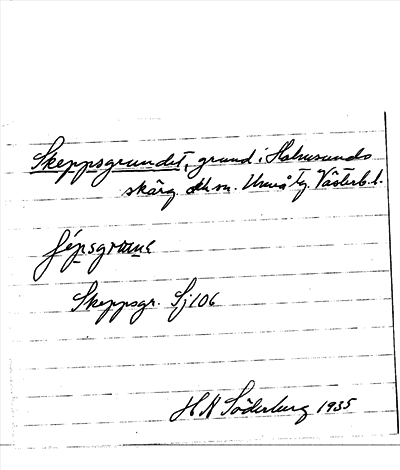 Skeppsgrundet, grund i Holmsunds
skärg. dk sn. Umeå tg. Västerb. l.
Skeppsgr. Sj 106
H A Söderberg 1935